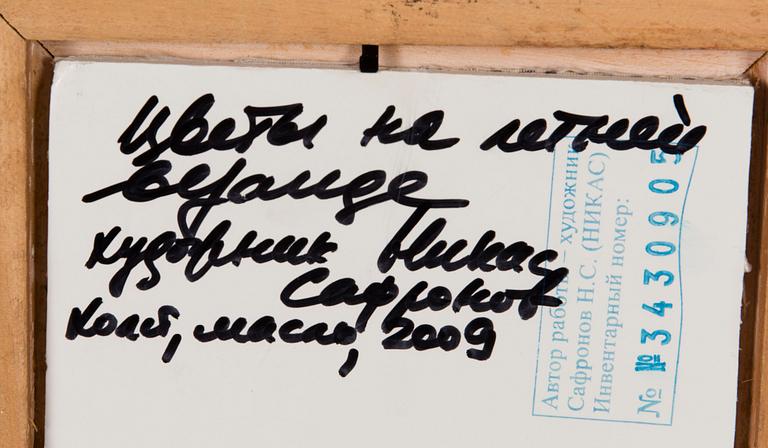 Цветы на летней
веранде
художник Никас
Сафронов
холст, масло, 2009
Автор работы – художник
Сафронов Н.С. (НИКАС)
Инвентарный номер:
№ №3430905